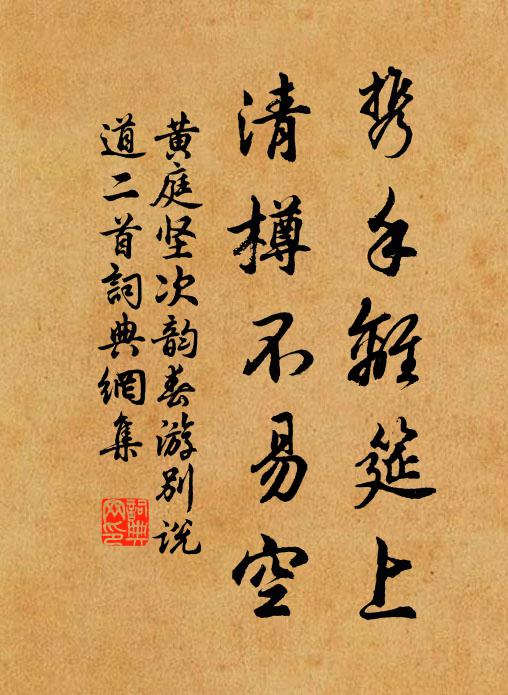 携手離筵上
清樽不易空
黄庭坚次韵春游别说
道二首詞典網集
詞典
网印